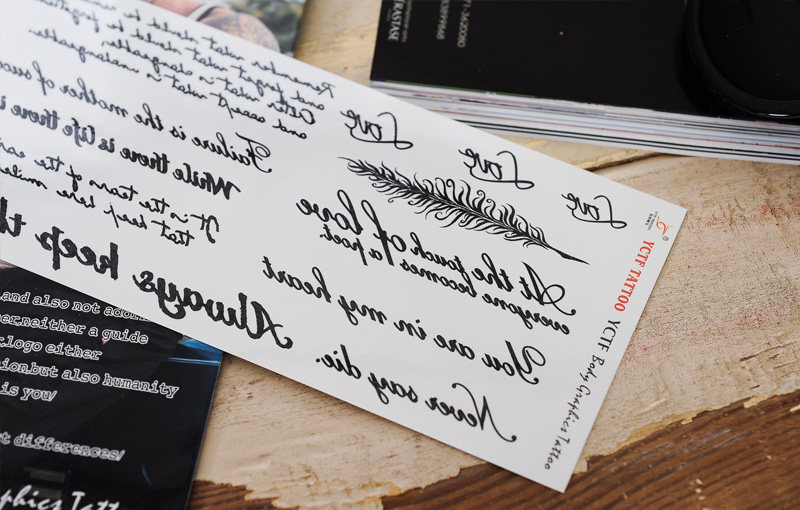 Remember what should be
and forget what should be forgotten.
Alter what is changeable.
and accept what is unchangeable.
Failure is the mother of succ
While there is life there i
It is the tears of the ear
that keep here smiles
Always keep th
Love
Love
Love
At the touch of love
everyone becomes a poet.
You are in my heart
Never say die.
YCTF TATTOO YCTF Body Graphics Tattoo
and also not ador
her.neither a guide
logo either
ion.but also humanity
is you/
t differences/
phics Tatt
ERASTASE